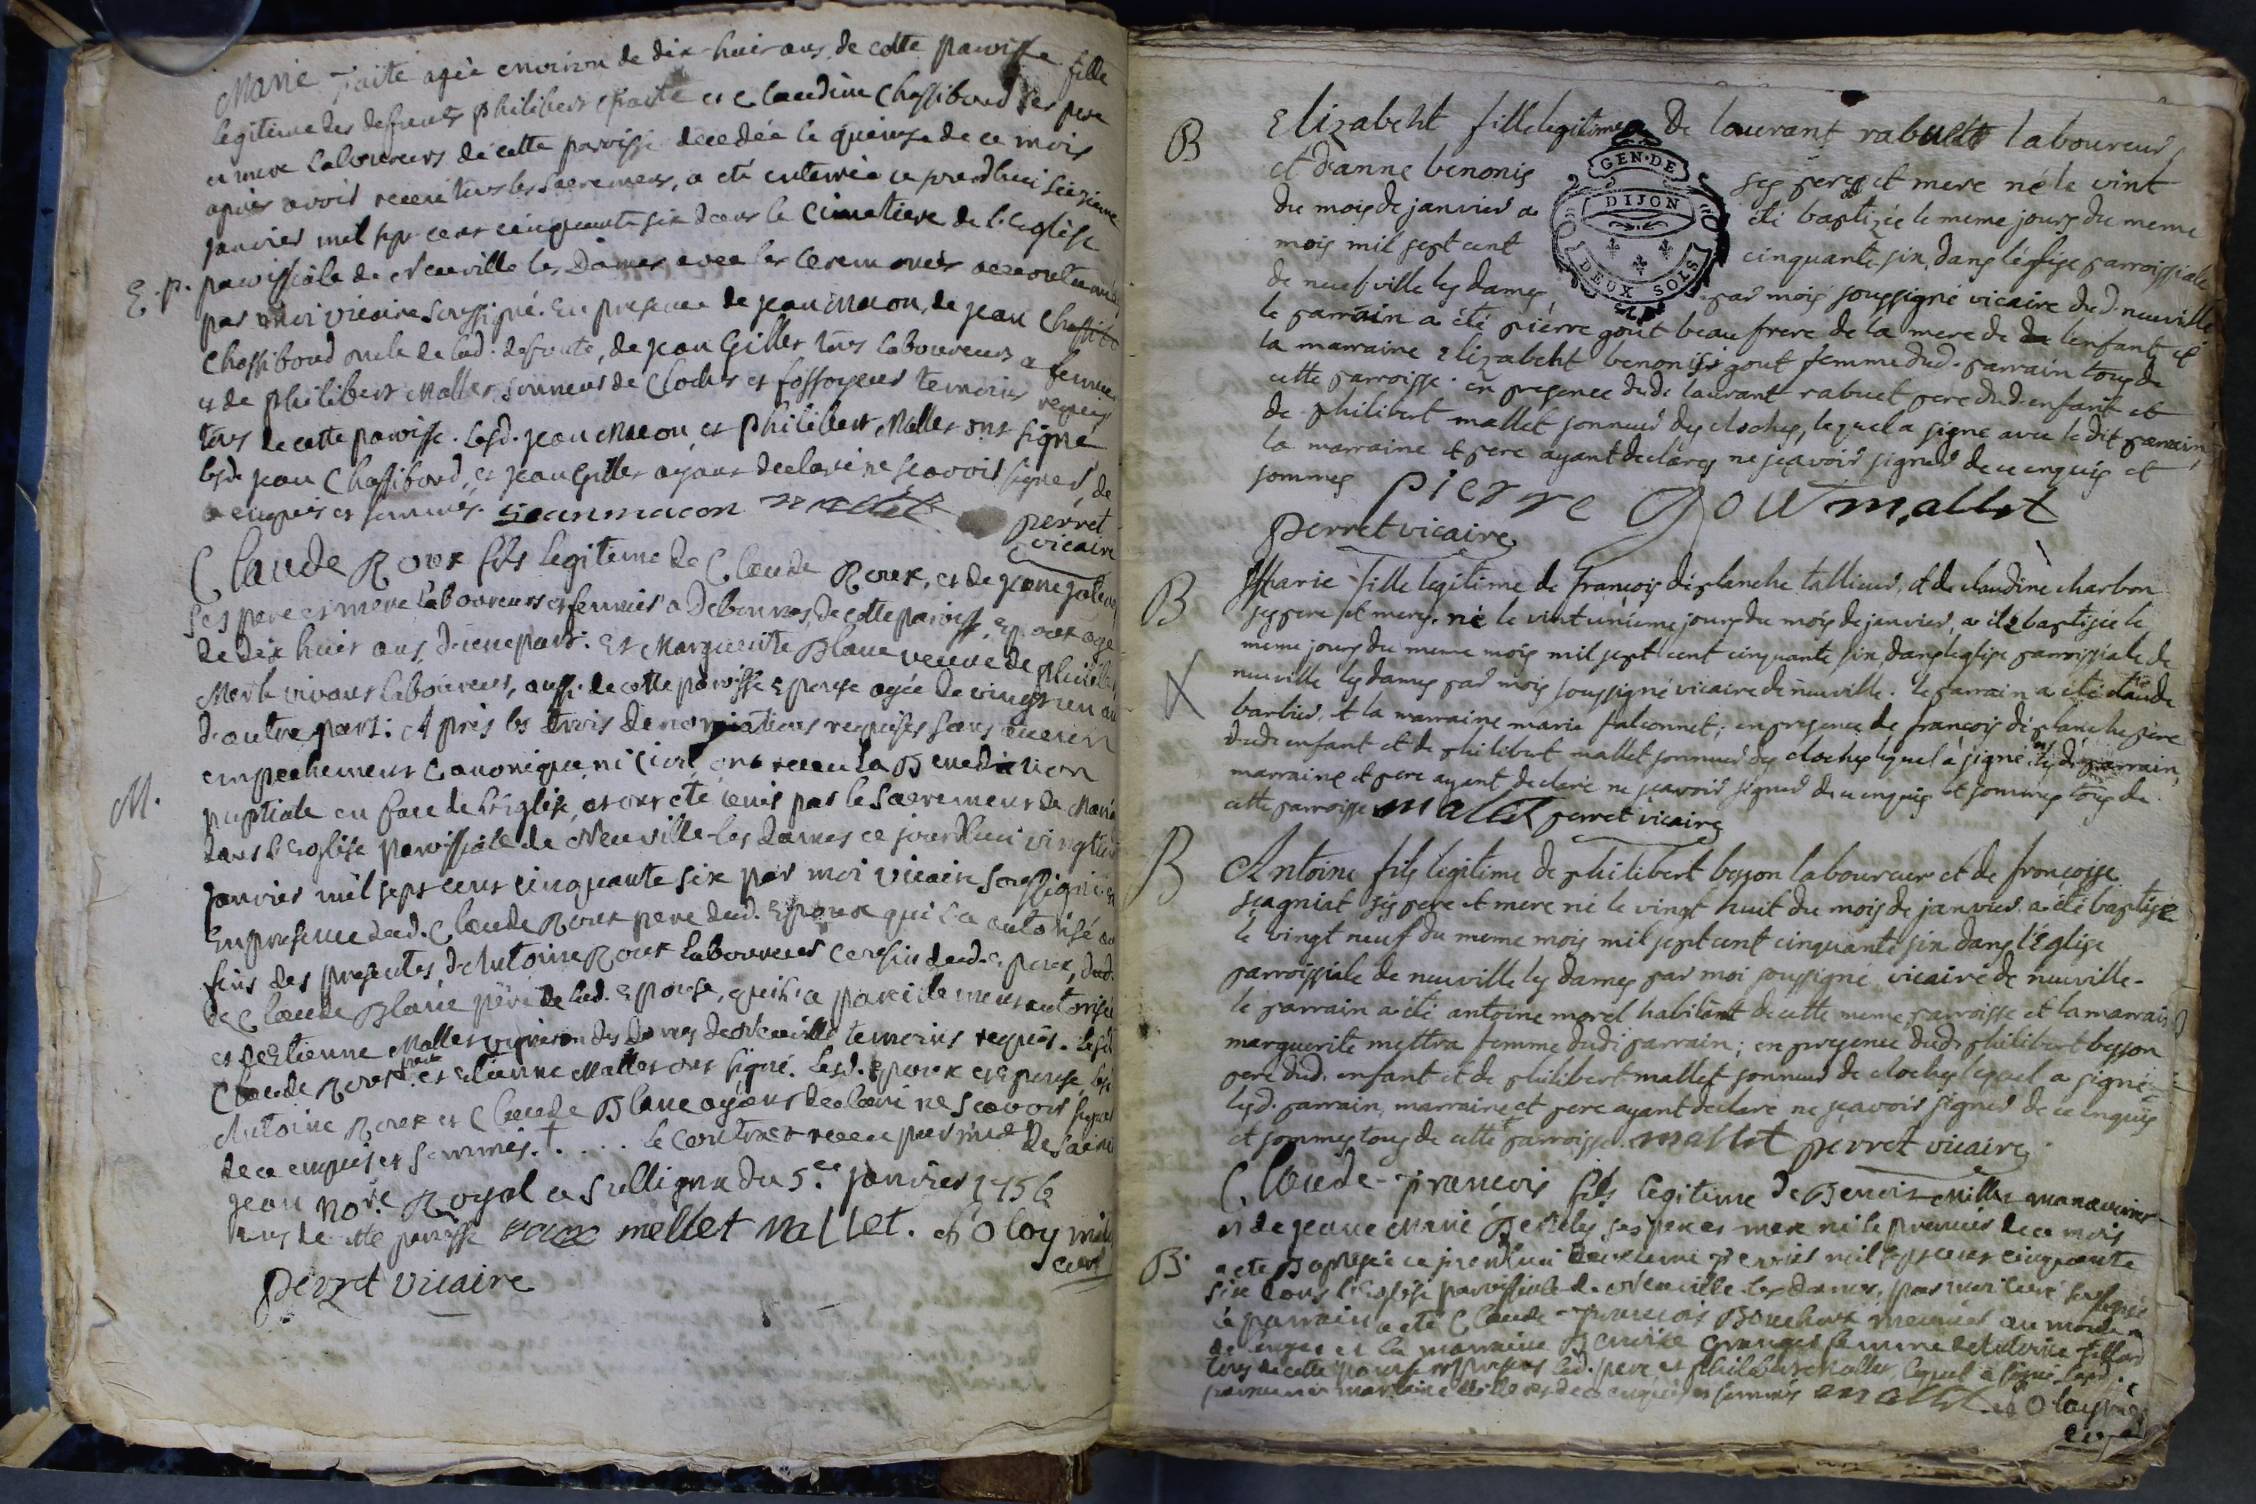 Marie faite agée environ de dix-huit ans de cette paroisse fille
legitime des defunts philibert faite et Claudine Chassiboud ses pere
et mere laboureurs de cette paroisse decedée le quinze de ce mois
après avoir receu tous les sacremens, a eté enterrée ce jourdhui seizieme
janvier mil sept cent cinquante six dans le cimetiere de l'eglise
E.p. paroissiale de Neuville les Dames avec les ceremonies accoutumées
par moi vicaire soussigné. En presence de jean macon, de jean
Chassiboud oncle de lad. defunte, de jean Gilles tous laboureurs
et de philibert Mallet sonneur de Cloches et fossoyeur temoins requis
tous de cette paroisse. Lesd. jean macon et philibert Mallet ont signé
lesd. jean Chassiboud, et jean Gilles ayant declaré ne scavoir signer, de
ce enquis et sommés. jean macon mallet
perret
vicaire
Claude Roux fils legitime de Claude Roux, et de jeane
ses pere et mere laboureurs et fermier a de cette paroisse, epoux agé
de dix huit ans d'une part: Et Marguerite Blanc veuve de philibert
Merle vivant laboureur, aussi de cette paroisse epouse agée de vingt un an
d'autre part: Après les trois denonciations requises sans aucun
empechement Canonique ni Civil ont receu la Benediction
M. nuptiale en face de l'Eglise, et ont eté unis par le Sacrement de Maria
dans l'Eglise paroissiale de Neuville-les Dames ce jourdhui vingt
janvier mil sept cent cinquante six par moi vicaire soussigné
En presence dud. Claude Roux pere dud. Epoux qui l'a autorisé au
fins des presentes d'Antoine Roux laboureur cousin dud. epoux,
de Claude Blanc père de lad. Epouse, qui l'a pareillement autorisée
et de Etienne Mallet vigneron des Dames de Neuville temoins requis. Lesd.
Claude Roux et Etienne Mallet ont signé. Lesd. Epoux et Epouse
Antoine Roux et Claude Blanc ayant declaré ne scavoir signer
de ce enquis et sommés. † . . le contract receu par me De saint
jean no.re Royal a Sulligna du 5.e janvier 1756
tous de cette paroisse roux mellet mallet.
curé
perret vicaire
B Elizabeht fille legitime De laurant rabuet laboureur
et d'anne benonis ses peres et mere né le vint
GEN·DE
DIJON
DEUX SOLS
du mois de janvier a été baptizée le meme jours du meme
mois mil sept cent cinquante six, dans l'église parroissiale
de neufville les dames, par mois soussigné vicaire dud. neuville
le parrain a été pièrre gout beau frere de la mere de lenfant, et
la marraine Elizabeht benonis gout femme dud. parrain tous de
cette parroisse. en presence dud. laurant rabuet pere dud. enfant et
de philibert mallet sonneur des cloches, lequel a signe avec le dit parrain
la marraine et pere ayant declarez ne sçavoir signer de ce enquis et
sommes pierre gout mallet
perret vicaire
B Marie fille legitime de françois déplanche tallieur, et de claudine charbon
ses pere et mere. né le vint unieme jours du mois de janvier, a été baptizée le
meme jours du meme mois mil sept cent cinquante six, dans l'eglise parroissiale de
neuville les dames par mois soussigné vicaire de neuville. le parrain a été claude
X barbier, et la marraine marie falconnet; en presence de françois déplanche pere
dud. enfant et de philibert mallet sonneur des cloches lequel a signé les d. parrain,
marraine et pere ayant declaré ne sçavoir signer de ce enquis et sommes tous de
cette parroisse mallet perret vicaire
B Antoine fils legitime de philibert besson laboureur et de françoise
seagniat ses pere et mere né le vingt huit du mois de janvier. a été baptize
le vingt neuf du meme mois mil sept cent cinquante six dans l'Eglise
parroissiale de neuville les dames par moi soussigné vicaire de neuville.
le parrain a été antoine morel habitant de cette meme parroisse et la marraine
marguerite mettra femme dudi parrain; en presence dud. philibert besson
pere dud. enfant et de philibert mallet sonneur de cloches lequel a signé
les d. parrain, marraine et pere ayant declaré ne sçavoir signer de ce enquis
et sommes tous de cette parroisse. mallet perret vicaire
Claude-françois fils legitime de Benoit manouvrier
et de jeane Marie ses pere et mere né le premier de ce mois
B. a eté Baptisé ce jourdhui deuxieme fevrier mil sept cent cinquante
six dans l'Eglise paroissiale de Neuville-les-Dames, par moi curé soussigné
le parrain a eté Claude-françois meunier au moulin
et la marraine Benoite femme d'Antoine
tous de cette paroisse led. pere et philibert Mallet, lequel a signé lesd.
parrain marraine de ce enquis et sommés mallet
curé